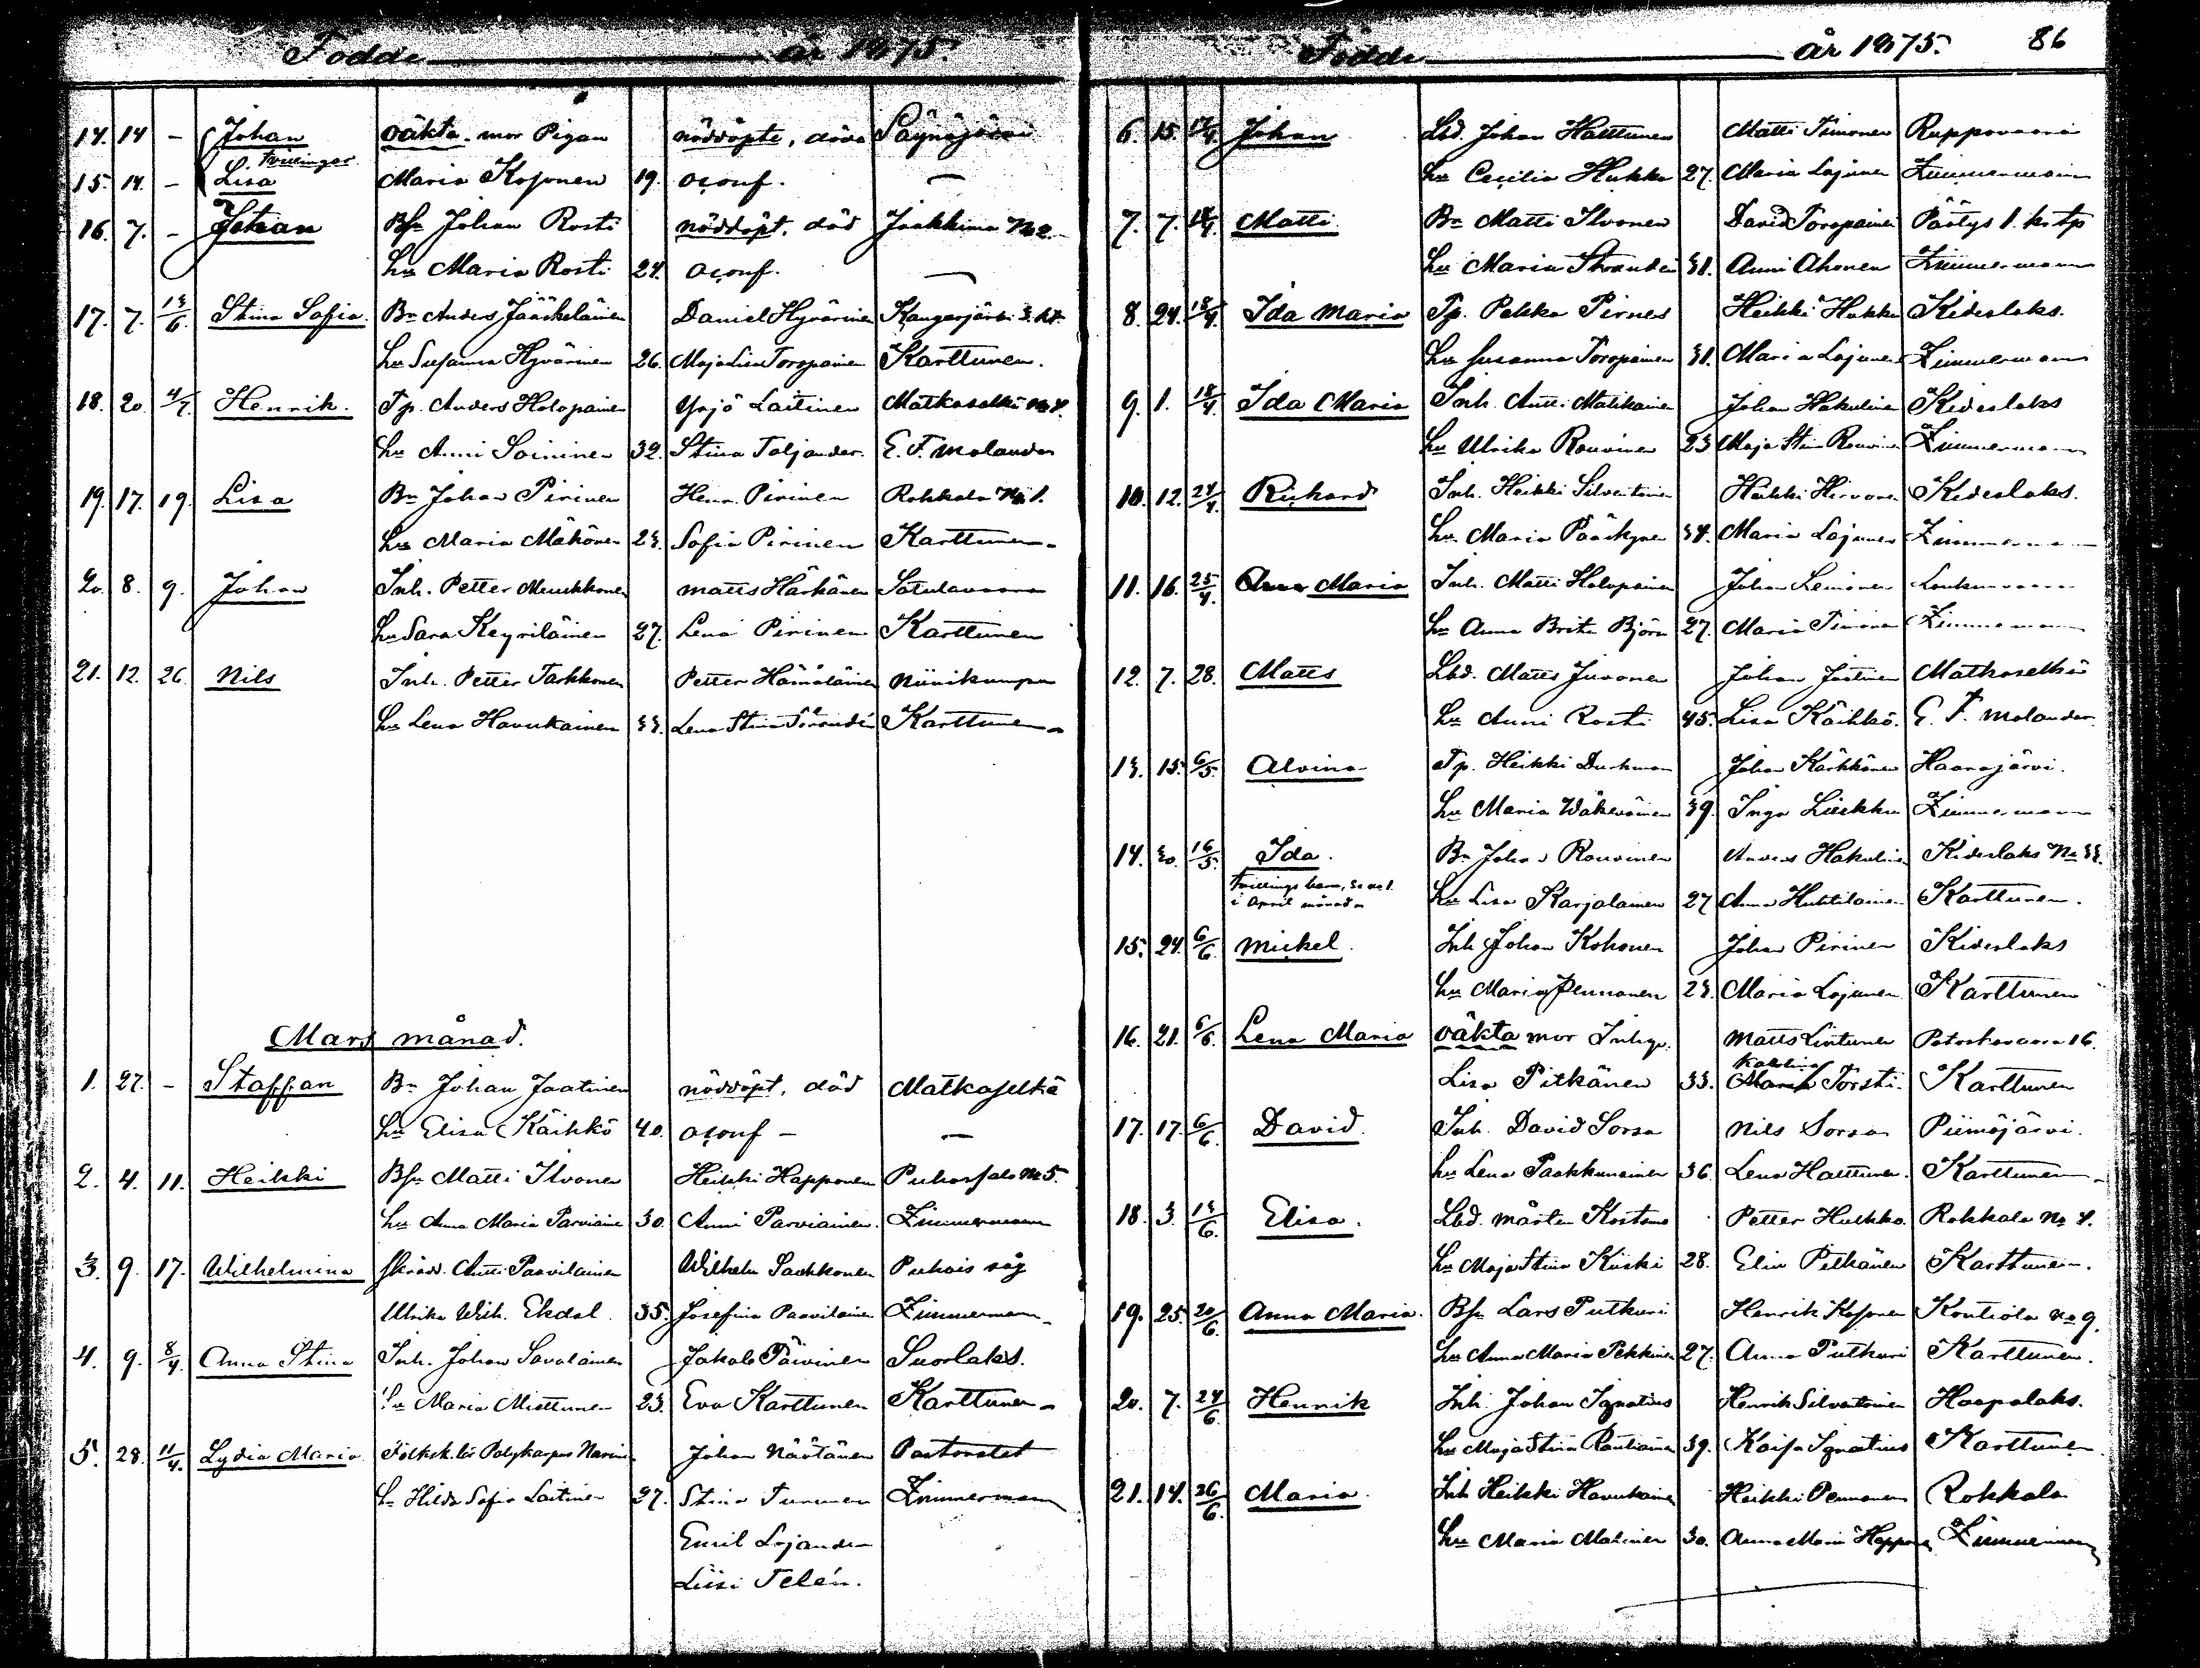 Födde år 1875.
14. 14 – Johan oäkta. mor Pigan nöddöpte, döda Säynäjärvi
Tvillingar
15. 14. – Lisa Maria Kosonen 19. oconf. —
16. 7. – Johan Bsn Johan Rosti nöddöpt, död Jaakkima No 2.
hu Maria Rosti 24. oconf. —
17. 7. 13/6. Stina Sofia. Bn Anders Jääskeläinen Daniel Hyvärinen Kangasjärvi 3.
hu Susanna Hyvärinen 26. Maja Lisa Toropainen Karttunen.
18. 20. 4/7. Henrik. Tp. Anders Holopainen Yrjö Laitinen Matkaselkä No 4.
hu Anni Soininen 32. Stina Toljander. E. F. Molander
19. 17. 19. Lisa Bn Johan Pirinen Henr. Pirinen Rokkala No 1.
hu Maria Mähönen 23. Sofia Pirinen Karttunen
20. 8. 9. Johan Inh. Petter Muukkonen Matts Härkänen Satulavaara
hu Sara Keyriläinen 27. Lena Pirinen Karttunen
21. 12. 26. Nils Inh. Petter Tarkkonen Petter Hämäläinen Niinikumpu
hu Lena Havukainen 33. Lena Stina Karttunen
Mars månad.
1. 27. – Staffan Bn Johan Jaatinen nöddöpt, död Matkaselkä
hu Elisa Käihkö 40. oconf – —
2. 4. 11. Heikki Bsn Matti Ilvonen Heikki Happonen Puhossalo No 5.
hu Anna Maria Parviainen 30. Anni Parviainen. Zimmermann
3. 9. 17. Wilhelmina Skrädd. Antti Paavilainen Wilhelm Saukkonen Puhois såg
Ulrika Wilh. Ekdal. 35. Josefina Paavilainen Zimmermann
4. 9. 8/4. Anna Stina Inh. Johan Savolainen Jakob Päivinen Suorlaks.
hu Maria Miettunen 23. Eva Karttunen Karttunen
5. 28. 11/4. Lydia Maria Folksk.lär Polykarpus Johan Näätänen Pastoratet
hu Hilda Sofia Laitinen 27. Stina Turunen Zimmermann
Emil Lojander
Liisi Telén.
Födde år 1875. 86
6. 15. Johan Lbd. Johan Halttunen Matti Timonen Ruppovaara
hu Cecilia Hukka 27. Maria Lajunen Zimmermann
7. 7. 18/4. Matti Bn Matti Ilvonen David Toropainen
hu Maria 31. Anni Ahonen Zimmermann
8. 24. 18/4. Ida Maria Tp. Pekka Pirnes Heikki Hukka Kideslaks.
hu Susanna Toropainen 31. Maria Lajunen Zimmermann
9. 1. 18/4. Ida Maria Inh. Antti Matikainen Johan Hakulinen Kideslaks
hu Ulrika Rouvinen 23 Maja Stina Rouvinen Zimmermann
10. 12. 24/4. Richard Inh. Heikki Silventoinen Heikki Hirvonen Kideslaks.
hu Maria Pääskynen 34. Maria Lajunen Zimmermann
11. 16. 25/4. Anna Maria Inh. Matti Holopainen Johan Leinonen Loukunvaara
hu Anna Brita Björn 27. Maria Timonen Zimmermann
12. 7. 28. Matts Lbd. Matts Juvonen Johan Jaatinen Matkaselkä
hu Anni Rosti 45. Lisa Käihkö. E. F. Molander.
13. 15. 6/5. Alvina Tp. Heikki Johan Kärkkänen Haarajärvi.
hu Maria Wäkeväinen 39. Inga Liukku Zimmermann
14. 30. 16/5. Ida. Bn Johan Rouvinen Anders Hakulinen Kideslaks No 33.
Tvillings barn, se no 1. i April månad hu Lisa Karjalainen 27 Anna Huttilainen Karttunen.
15. 24. 6/6. Mickel. Inh Johan Kohonen Johan Pirinen Kideslaks
hu Maria Pennanen 23. Maria Lajunen Karttunen
16. 21. 6/6. Lena Maria oäkta mor Inhys. Matts Lintunen Potoskavaara 16.
Lisa Pitkänen 33. Torsti. Karttunen
17. 17. 6/6. David. Inh. David Sorsa Nils Sorsa Piimäjärvi.
hu Lena Paakkunainen 36. Lena Halttunen. Karttunen
18. 3. 13/6. Elisa. Lbd. Mårten Kostamo Petter Hukka Rokkala No 4.
hu Maja Stina Kiiski 28. Elin Pitkänen Karttunen.
19. 25. 20/6. Anna Maria. Bsn Lars Putkuri Henrik Kosonen Kontiola No 9.
hu Anna Maria Pekkinen 27. Anna Putkuri Karttunen.
20. 7. 24/6. Henrik Inh. Johan Ignatius Henrik Silventoinen Haapalaks.
hu Maja Stina Rautiainen 39. Kaisa Ignatius Karttunen
21. 14. 26/6. Maria. Inh Heikki Havukainen Heikki Pennanen Rokkala
hu Maria Matinen 30. Anna Maria Happonen Zimmermann